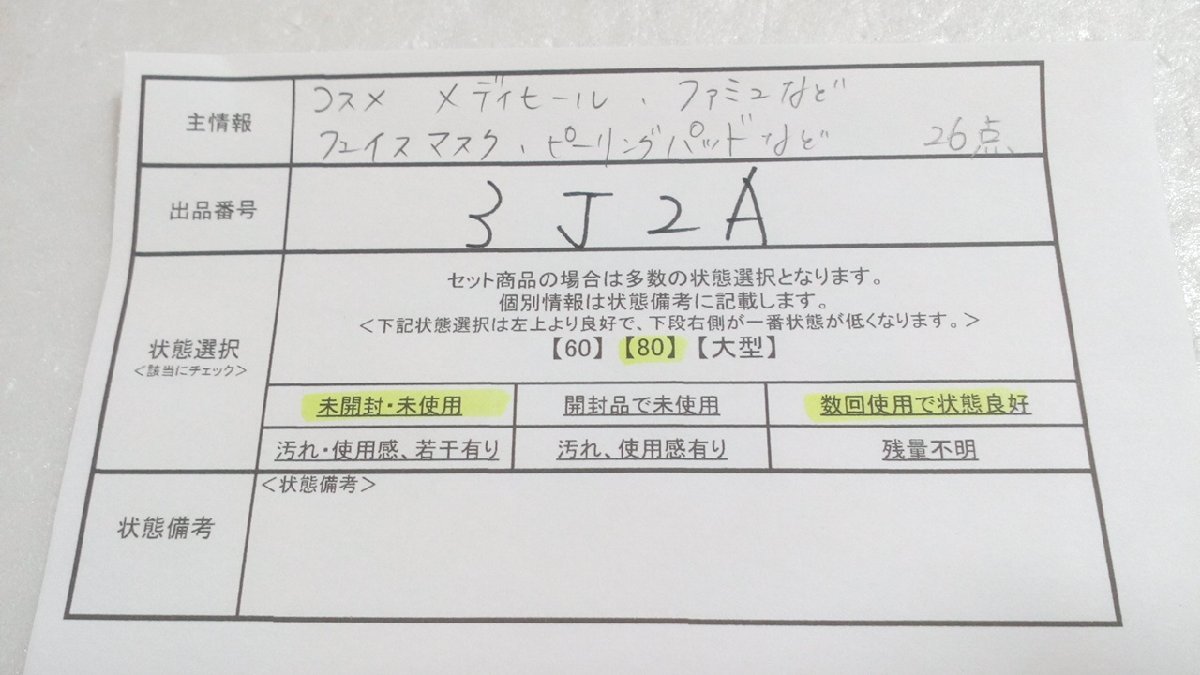 主情報
コスメ メディヒール、ファミュなど
フェイスマスク、ピーリングパッドなど 26点
出品番号
3J2A
状態選択
<該当にチェック>
セット商品の場合は多数の状態選択となります。
個別情報は状態備考に記載します。
<下記状態選択は左上より良好で、下段右側が一番状態が低くなります。>
【60】【80】【大型】
未開封・未使用 開封品で未使用 数回使用で状態良好
汚れ・使用感、若干有り 汚れ、使用感有り 残量不明
状態備考
<状態備考>